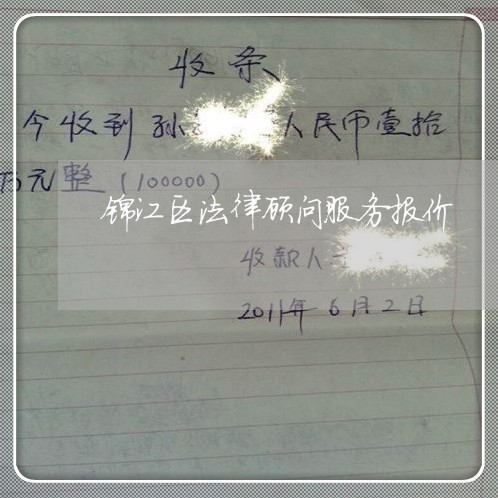 收条
今收到孙 人民币壹拾
万元整（100000）
锦江区法律顾问服务报价
收款人
2011年6月2日